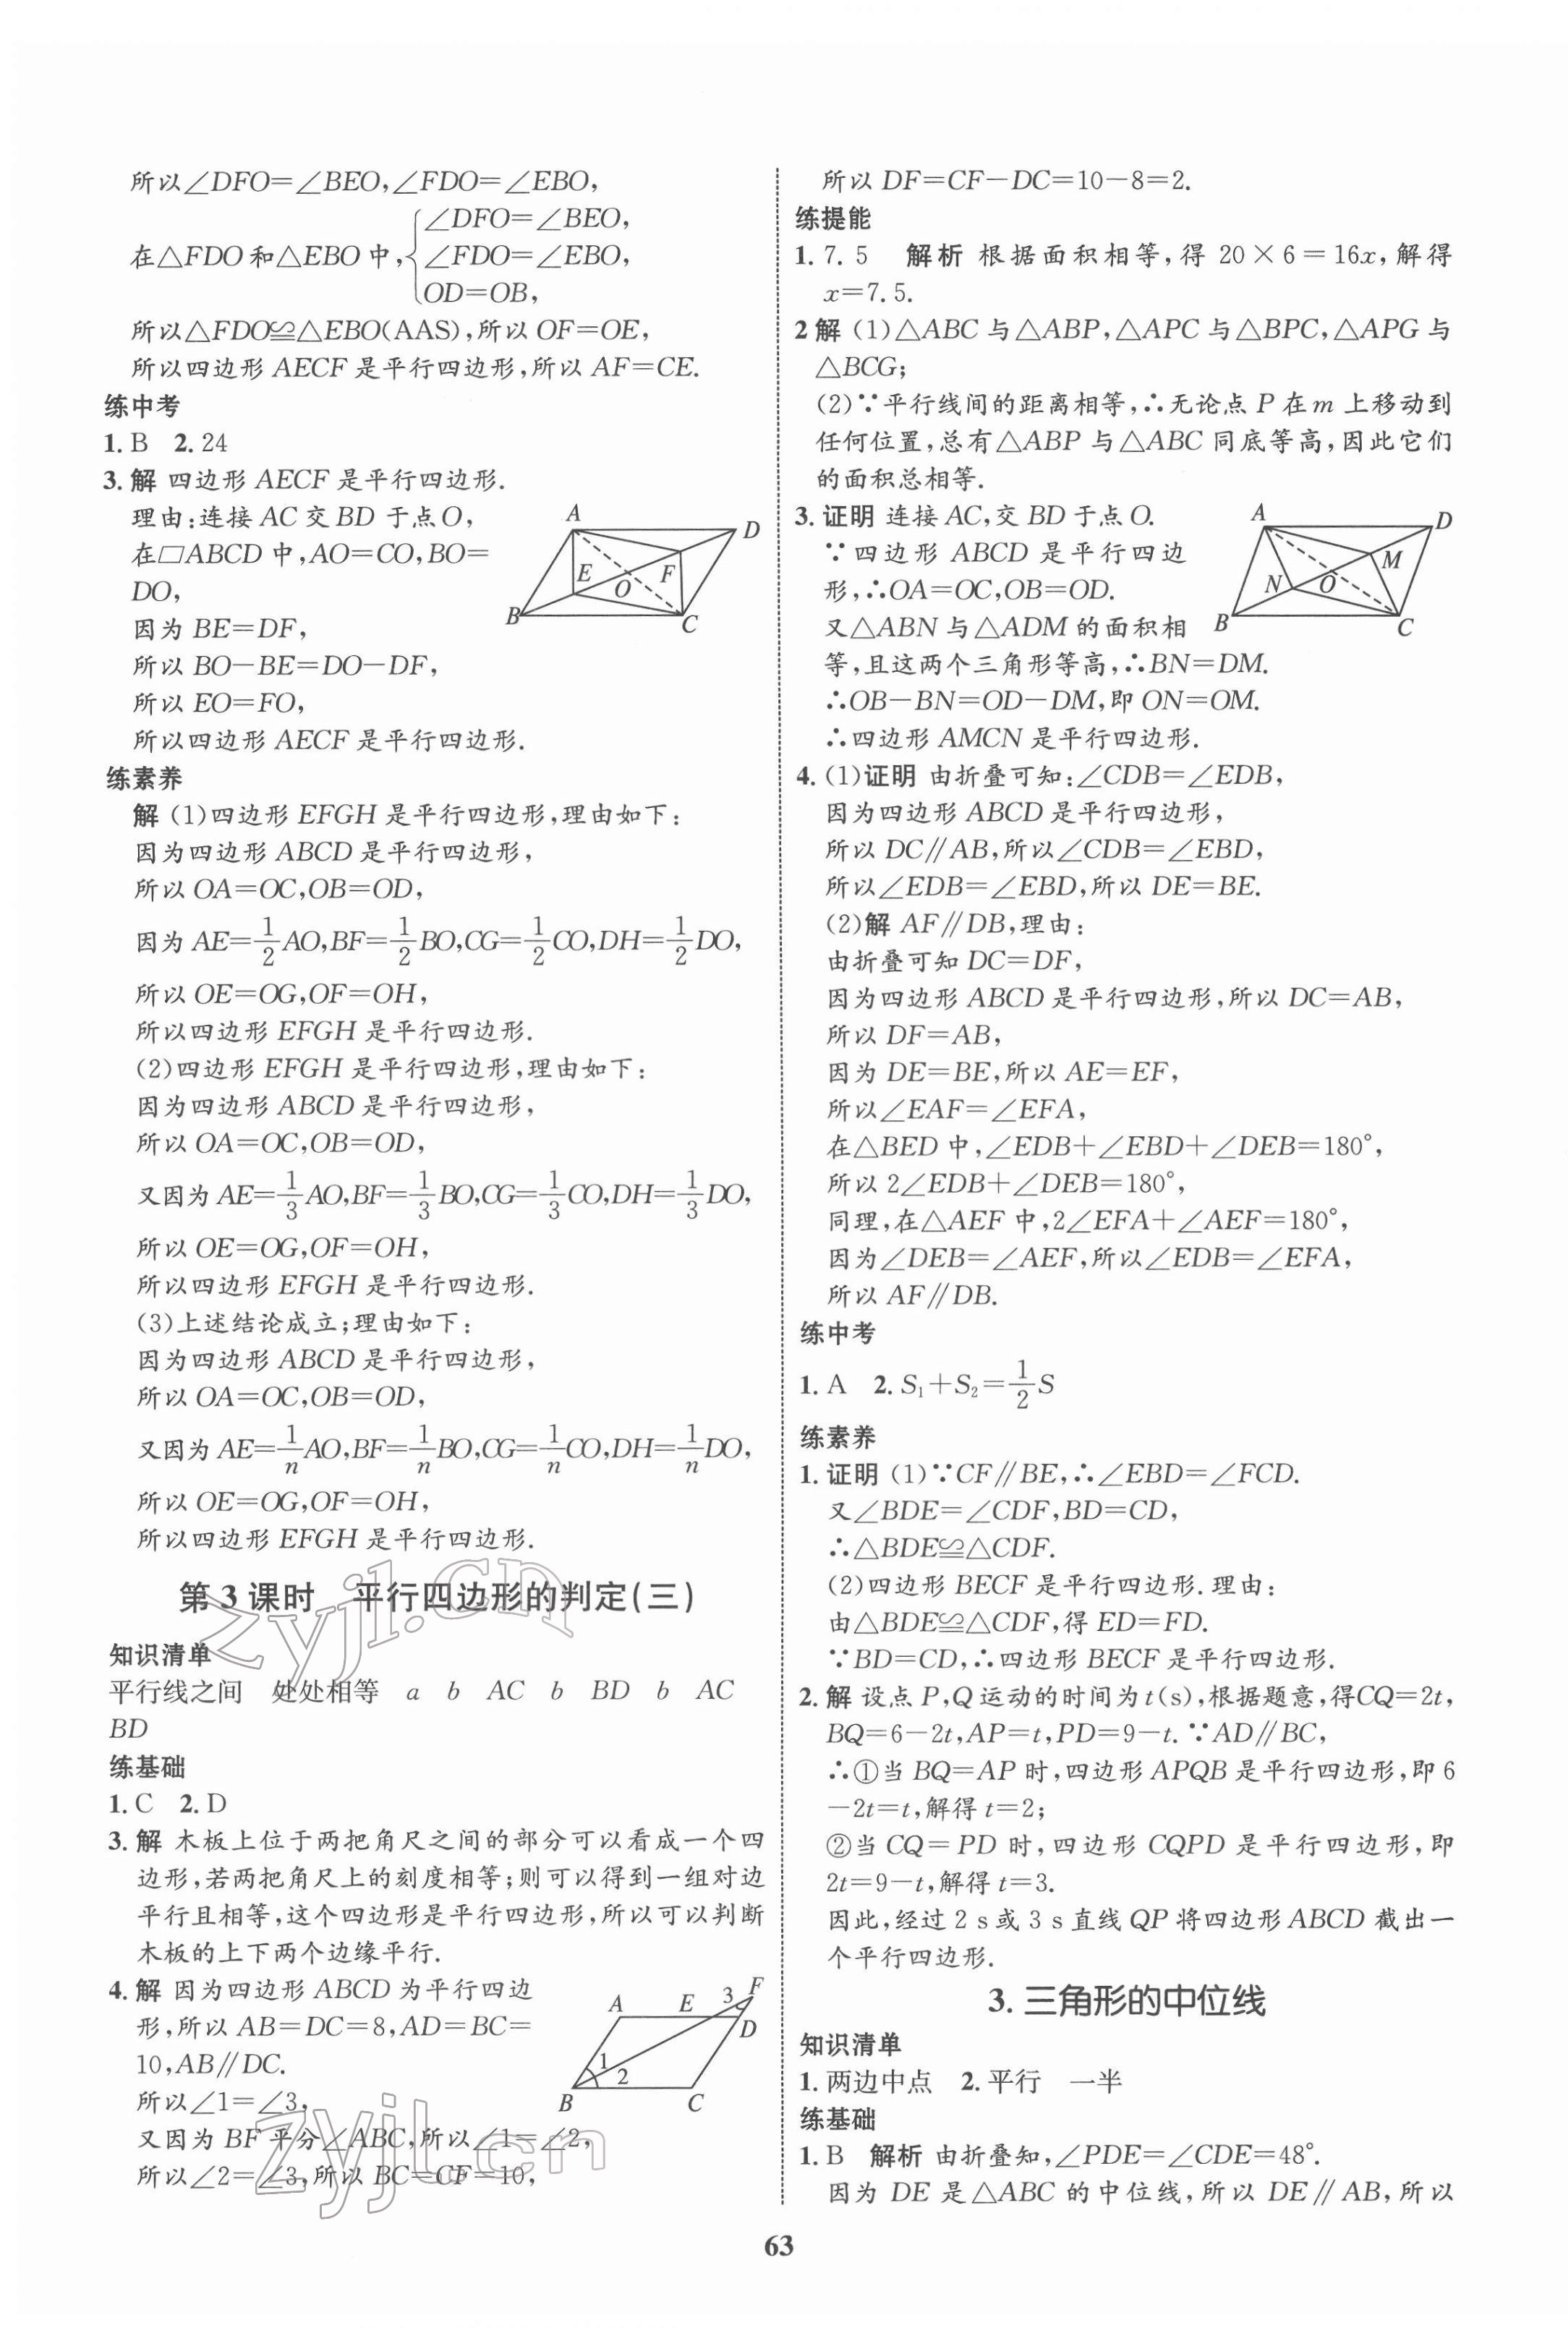 所以∠DFO=∠BEO,∠FDO=∠EBO,
在△FDO和△EBO中,{∠DFO=∠BEO,
∠FDO=∠EBO,
OD=OB,
所以△FDO≌△EBO(AAS),所以OF=OE,
所以四边形AECF是平行四边形,所以AF=CE.
练中考
1.B 2.24
3.解 四边形AECF是平行四边形.
理由:连接AC交BD于点O,
在□ABCD中,AO=CO,BO=
DO,
因为BE=DF,
所以BO-BE=DO-DF,
所以EO=FO,
所以四边形AECF是平行四边形.
A
D
E
F
O
B
C
练素养
解 (1)四边形EFGH是平行四边形,理由如下:
因为四边形ABCD是平行四边形,
所以OA=OC,OB=OD,
因为AE=1/2AO,BF=1/2BO,CG=1/2CO,DH=1/2DO,
所以OE=OG,OF=OH,
所以四边形EFGH是平行四边形.
(2)四边形EFGH是平行四边形,理由如下:
因为四边形ABCD是平行四边形,
所以OA=OC,OB=OD,
又因为AE=1/3AO,BF=1/3BO,CG=1/3CO,DH=1/3DO,
所以OE=OG,OF=OH,
所以四边形EFGH是平行四边形.
(3)上述结论成立;理由如下:
因为四边形ABCD是平行四边形,
所以OA=OC,OB=OD,
又因为AE=1/nAO,BF=1/nBO,CG=1/nCO,DH=1/nDO,
所以OE=OG,OF=OH,
所以四边形EFGH是平行四边形.
第3课时 平行四边形的判定(三)
知识清单
平行线之间 处处相等 a b AC b BD b AC
BD
练基础
1.C 2.D
3.解 木板上位于两把角尺之间的部分可以看成一个四
边形,若两把角尺上的刻度相等;则可以得到一组对边
平行且相等,这个四边形是平行四边形,所以可以判断
木板的上下两个边缘平行.
4.解 因为四边形ABCD为平行四边
形,所以AB=DC=8,AD=BC=
10,AB∥DC.
所以∠1=∠3,
又因为BF平分∠ABC,所以∠1=∠2,
所以∠2=∠3,所以BC=CF=10,
A
E
3
F
D
1
2
B
C
zyjl.cn
zyjl.cn
所以DF=CF-DC=10-8=2.
练提能
1.7.5 解析 根据面积相等,得20×6=16x,解得
x=7.5.
2解 (1)△ABC与△ABP,△APC与△BPC,△APG与
△BCG;
(2)∵平行线间的距离相等,∴无论点P在m上移动到
任何位置,总有△ABP与△ABC同底等高,因此它们
的面积总相等.
3.证明 连接AC,交BD于点O.
∵四边形ABCD是平行四边
形,∴OA=OC,OB=OD.
又△ABN与△ADM的面积相
等,且这两个三角形等高,∴BN=DM.
∴OB-BN=OD-DM,即ON=OM.
∴四边形AMCN是平行四边形.
A
D
M
N
O
B
C
4.(1)证明 由折叠可知:∠CDB=∠EDB,
因为四边形ABCD是平行四边形,
所以DC∥AB,所以∠CDB=∠EBD,
所以∠EDB=∠EBD,所以DE=BE.
(2)解 AF∥DB,理由:
由折叠可知DC=DF,
因为四边形ABCD是平行四边形,所以DC=AB,
所以DF=AB,
因为DE=BE,所以AE=EF,
所以∠EAF=∠EFA,
在△BED中,∠EDB+∠EBD+∠DEB=180°,
所以2∠EDB+∠DEB=180°,
同理,在△AEF中,2∠EFA+∠AEF=180°,
因为∠DEB=∠AEF,所以∠EDB=∠EFA,
所以AF∥DB.
练中考
1.A 2.S₁+S₂=1/2S
练素养
1.证明 (1)∵CF∥BE,∴∠EBD=∠FCD.
又∠BDE=∠CDF,BD=CD,
∴△BDE≌△CDF.
(2)四边形BECF是平行四边形.理由:
由△BDE≌△CDF,得ED=FD.
∵BD=CD,∴四边形BECF是平行四边形.
2.解 设点P,Q运动的时间为t(s),根据题意,得CQ=2t,
BQ=6-2t,AP=t,PD=9-t.∵AD∥BC,
∴①当BQ=AP时,四边形APQB是平行四边形,即6
-2t=t,解得t=2;
②当CQ=PD时,四边形CQPD是平行四边形,即
2t=9-t,解得t=3.
因此,经过2 s或3 s直线QP将四边形ABCD截出一
个平行四边形.
3.三角形的中位线
知识清单
1.两边中点 2.平行 一半
练基础
1.B 解析 由折叠知,∠PDE=∠CDE=48°.
因为DE是△ABC的中位线,所以DE∥AB,所以
63